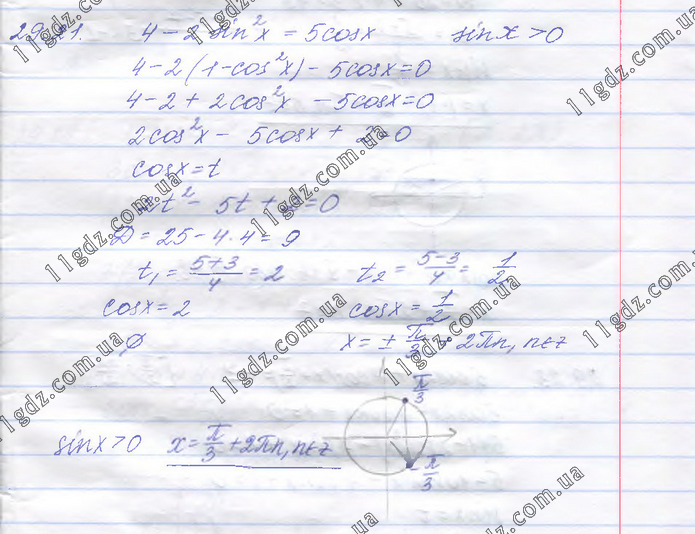 29.21. 4 - 2 sin²x = 5cosx sinx > 0
4 - 2(1 - cos²x) - 5cosx = 0
4 - 2 + 2cos²x - 5cosx = 0
2cos²x - 5cosx + 2 = 0
cosx = t
2t² - 5t + 2 = 0
D = 25 - 4·4 = 9
t₁ = (5+3)/4 = 2 t₂ = (5-3)/4 = 1/2
cosx = 2 cosx = 1/2
∅ x = ± π/3 + 2πn, n∈z
π/3
sinx > 0 x = π/3 + 2πn, n∈z
- π/3
11gdz.com.ua
11gdz.com.ua
11gdz.com.ua
11gdz.com.ua
11gdz.com.ua
11gdz.com.ua
11gdz.com.ua
11gdz.com.ua
11gdz.com.ua
11gdz.com.ua